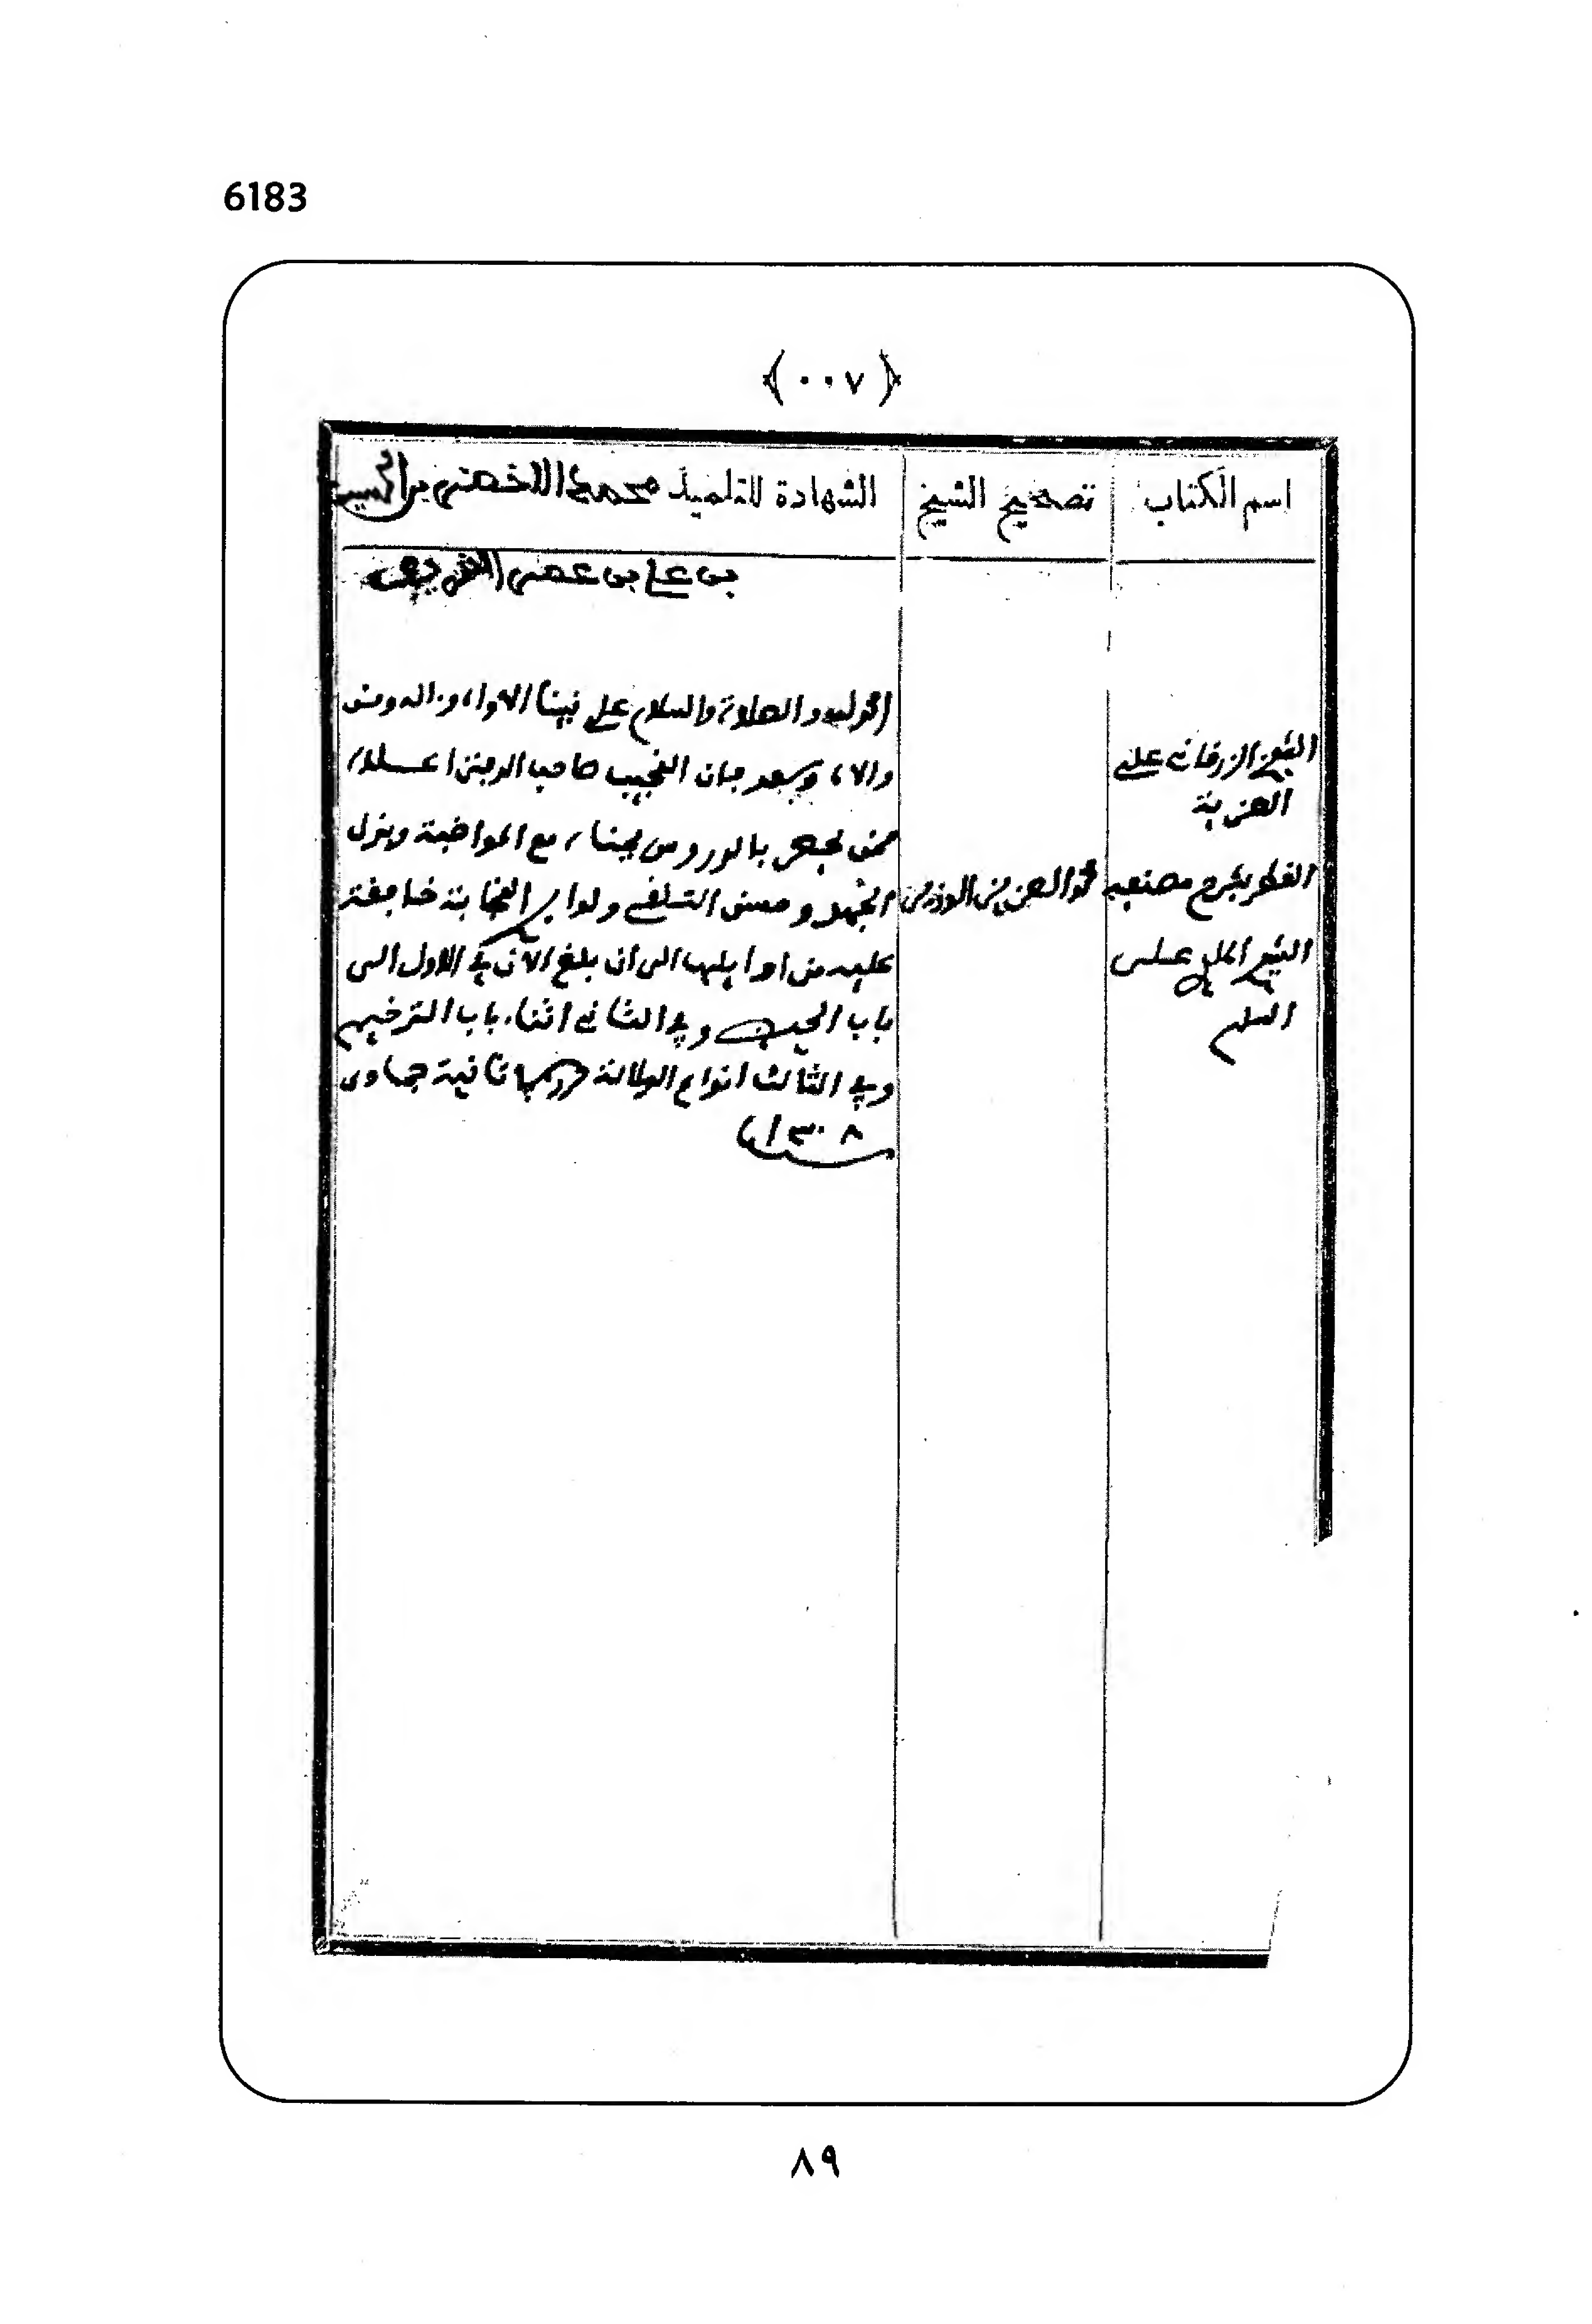 6183
﴿٠٠٧﴾
اسم الكتاب
تصحيح الشيخ
الشهادة للتلميذ محمد الاخضر بن الحسين
بن علي بن عمر الشريف
الشيخ الزرقاني على
العزية
القطر بشرح مصنفه
الشيخ الملوي على
السلم
محمد العزيز الوزير
الحمد لله والصلاة والسلام على نبينا الاواه وءاله ومن
والاه وبعد فان النجيب صاحب الدفتر اعلاه
ممن يحضر بالدروس مع المواظبة وبذل
الجهد وحسن التلقي
عليه من اوايلها الى ان بلغ الآن في الاول الى
باب الحج وفي الثاني اثناء باب الترخيم
وفي الثالث انواع الدلالة ثانية جمادى
١٣٠٨
٨٩